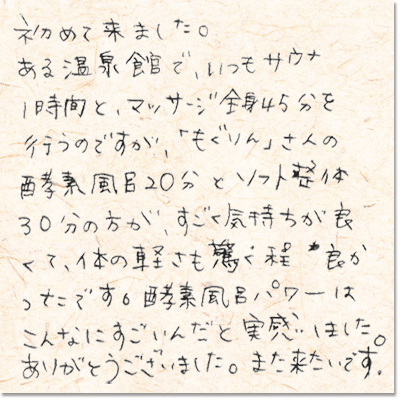 初めて来ました。
ある温泉館で、いつもサウナ
1時間と、マッサージ全身45分を
行うのですが、「もぐりん」さんの
酵素風呂20分とソフト整体
30分の方が、すごく気持ちが良
くて、体の軽さも驚く程 良か
ったです。酵素風呂パワーは
こんなにすごいんだと実感しました。
ありがとうございました。また来たいです。